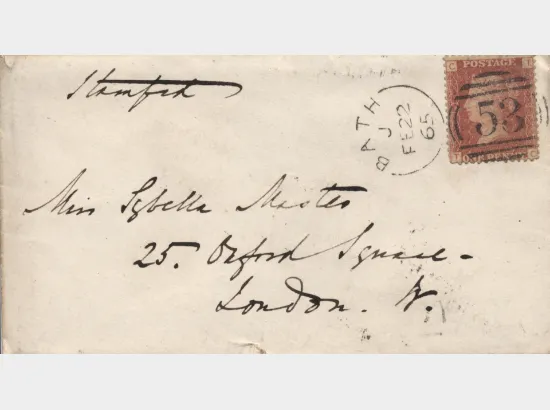 Stamped
BATH
J
FE 22
65
C T
POSTAGE
53
T C
Miss Sybella Master
25. Oxford Square -
London. W.